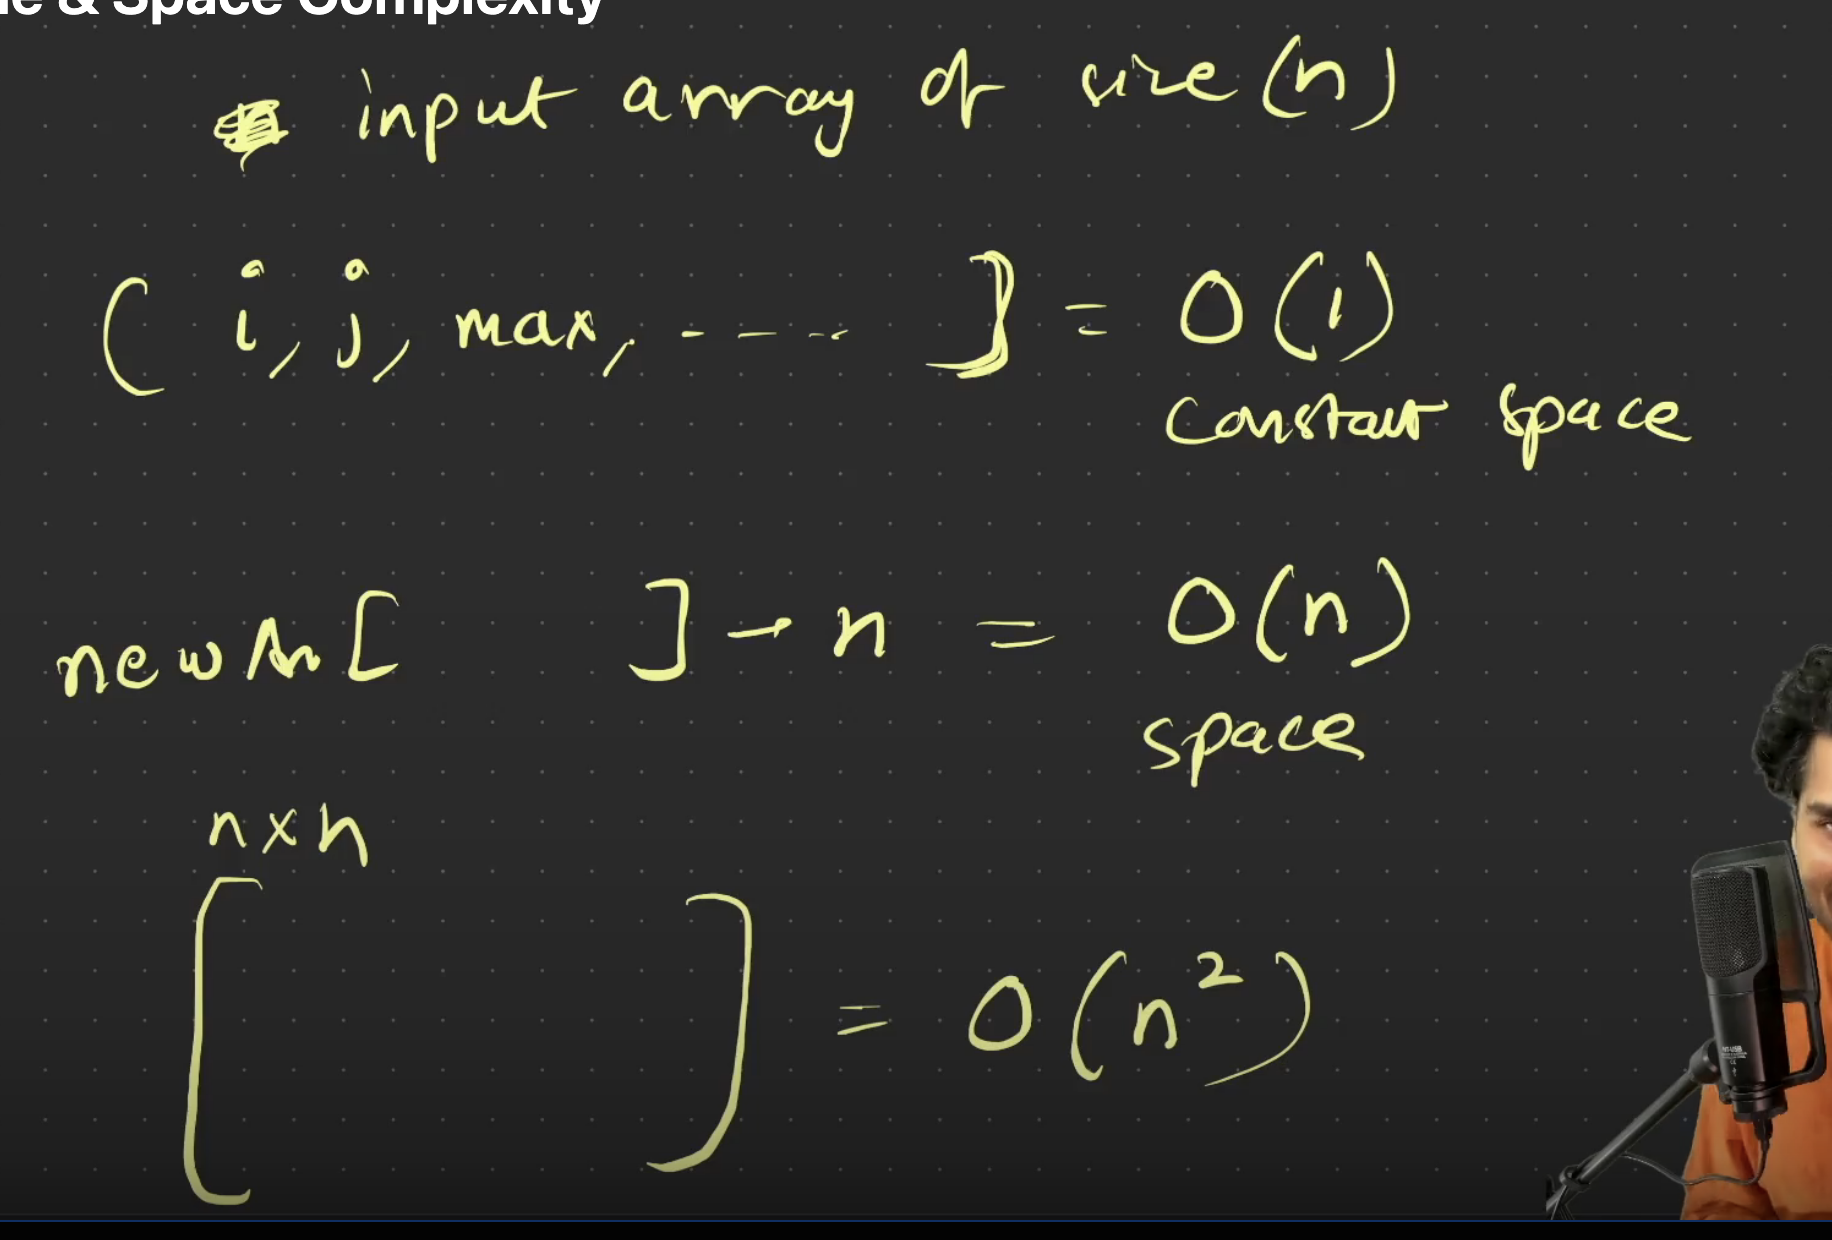 & Space Complexity
input array of size (n)
( i, j, max, - - - - ] = O(1)
constant space
newArr [ ] → n = O(n)
space
n x n
[ ] = O(n²)